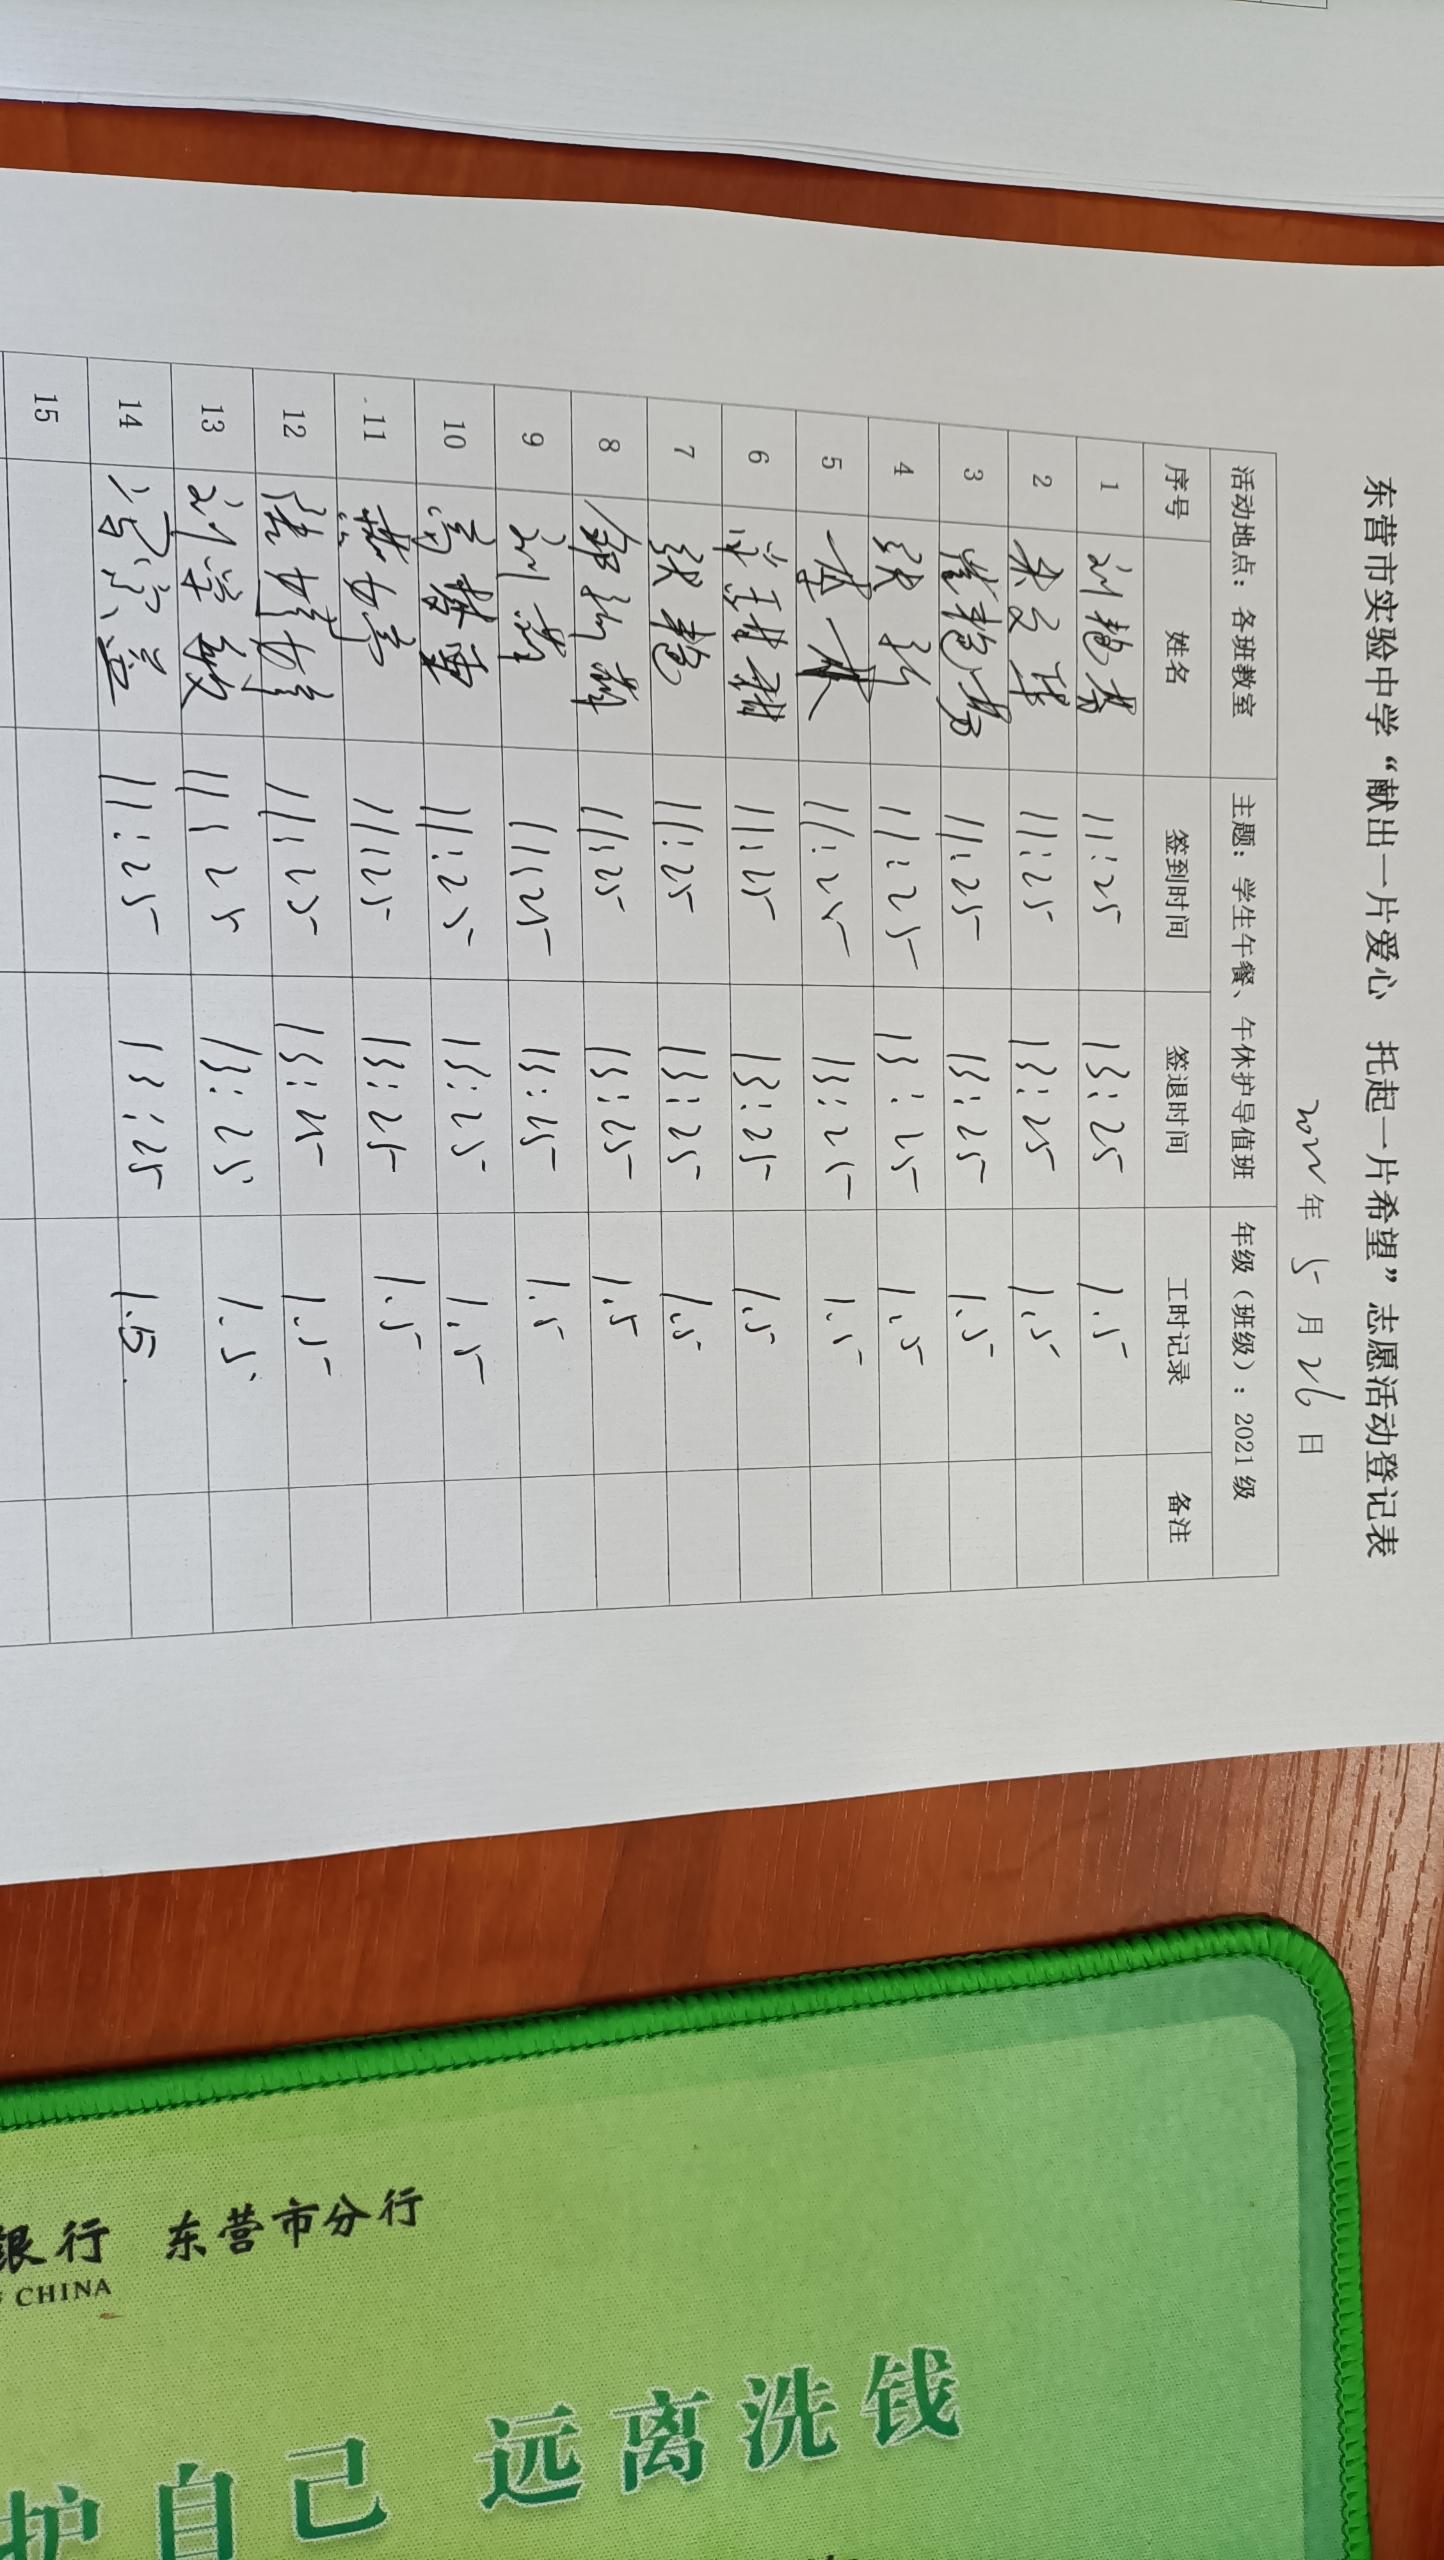 东营市实验中学“献出一片爱心 托起一片希望”志愿活动登记表
2022年 5月26日
活动地点：各班教室 主题：学生午餐、午休护导值班 年级（班级）：2021级
序号 姓名 签到时间 签退时间 工时记录 备注
1 刘艳芳 11:25 13:25 1.5
2 11:25 13:25 1.5
3 崔艳芳 11:25 13:25 1.5
4 11:25 13:25 1.5
5 11:25 13:25 1.5
6 11:25 13:25 1.5
7 张艳 11:25 13:25 1.5
8 11:25 13:25 1.5
9 刘萍 11:25 13:25 1.5
10 11:25 13:25 1.5
11 燕女亭 11:25 13:25 1.5
12 陈婷婷 11:25 13:25 1.5
13 刘学敏 11:25 13:25 1.5
14 冯常益 11:25 13:25 1.5
15
银行 东营市分行
CHINA
护自己 远离洗钱